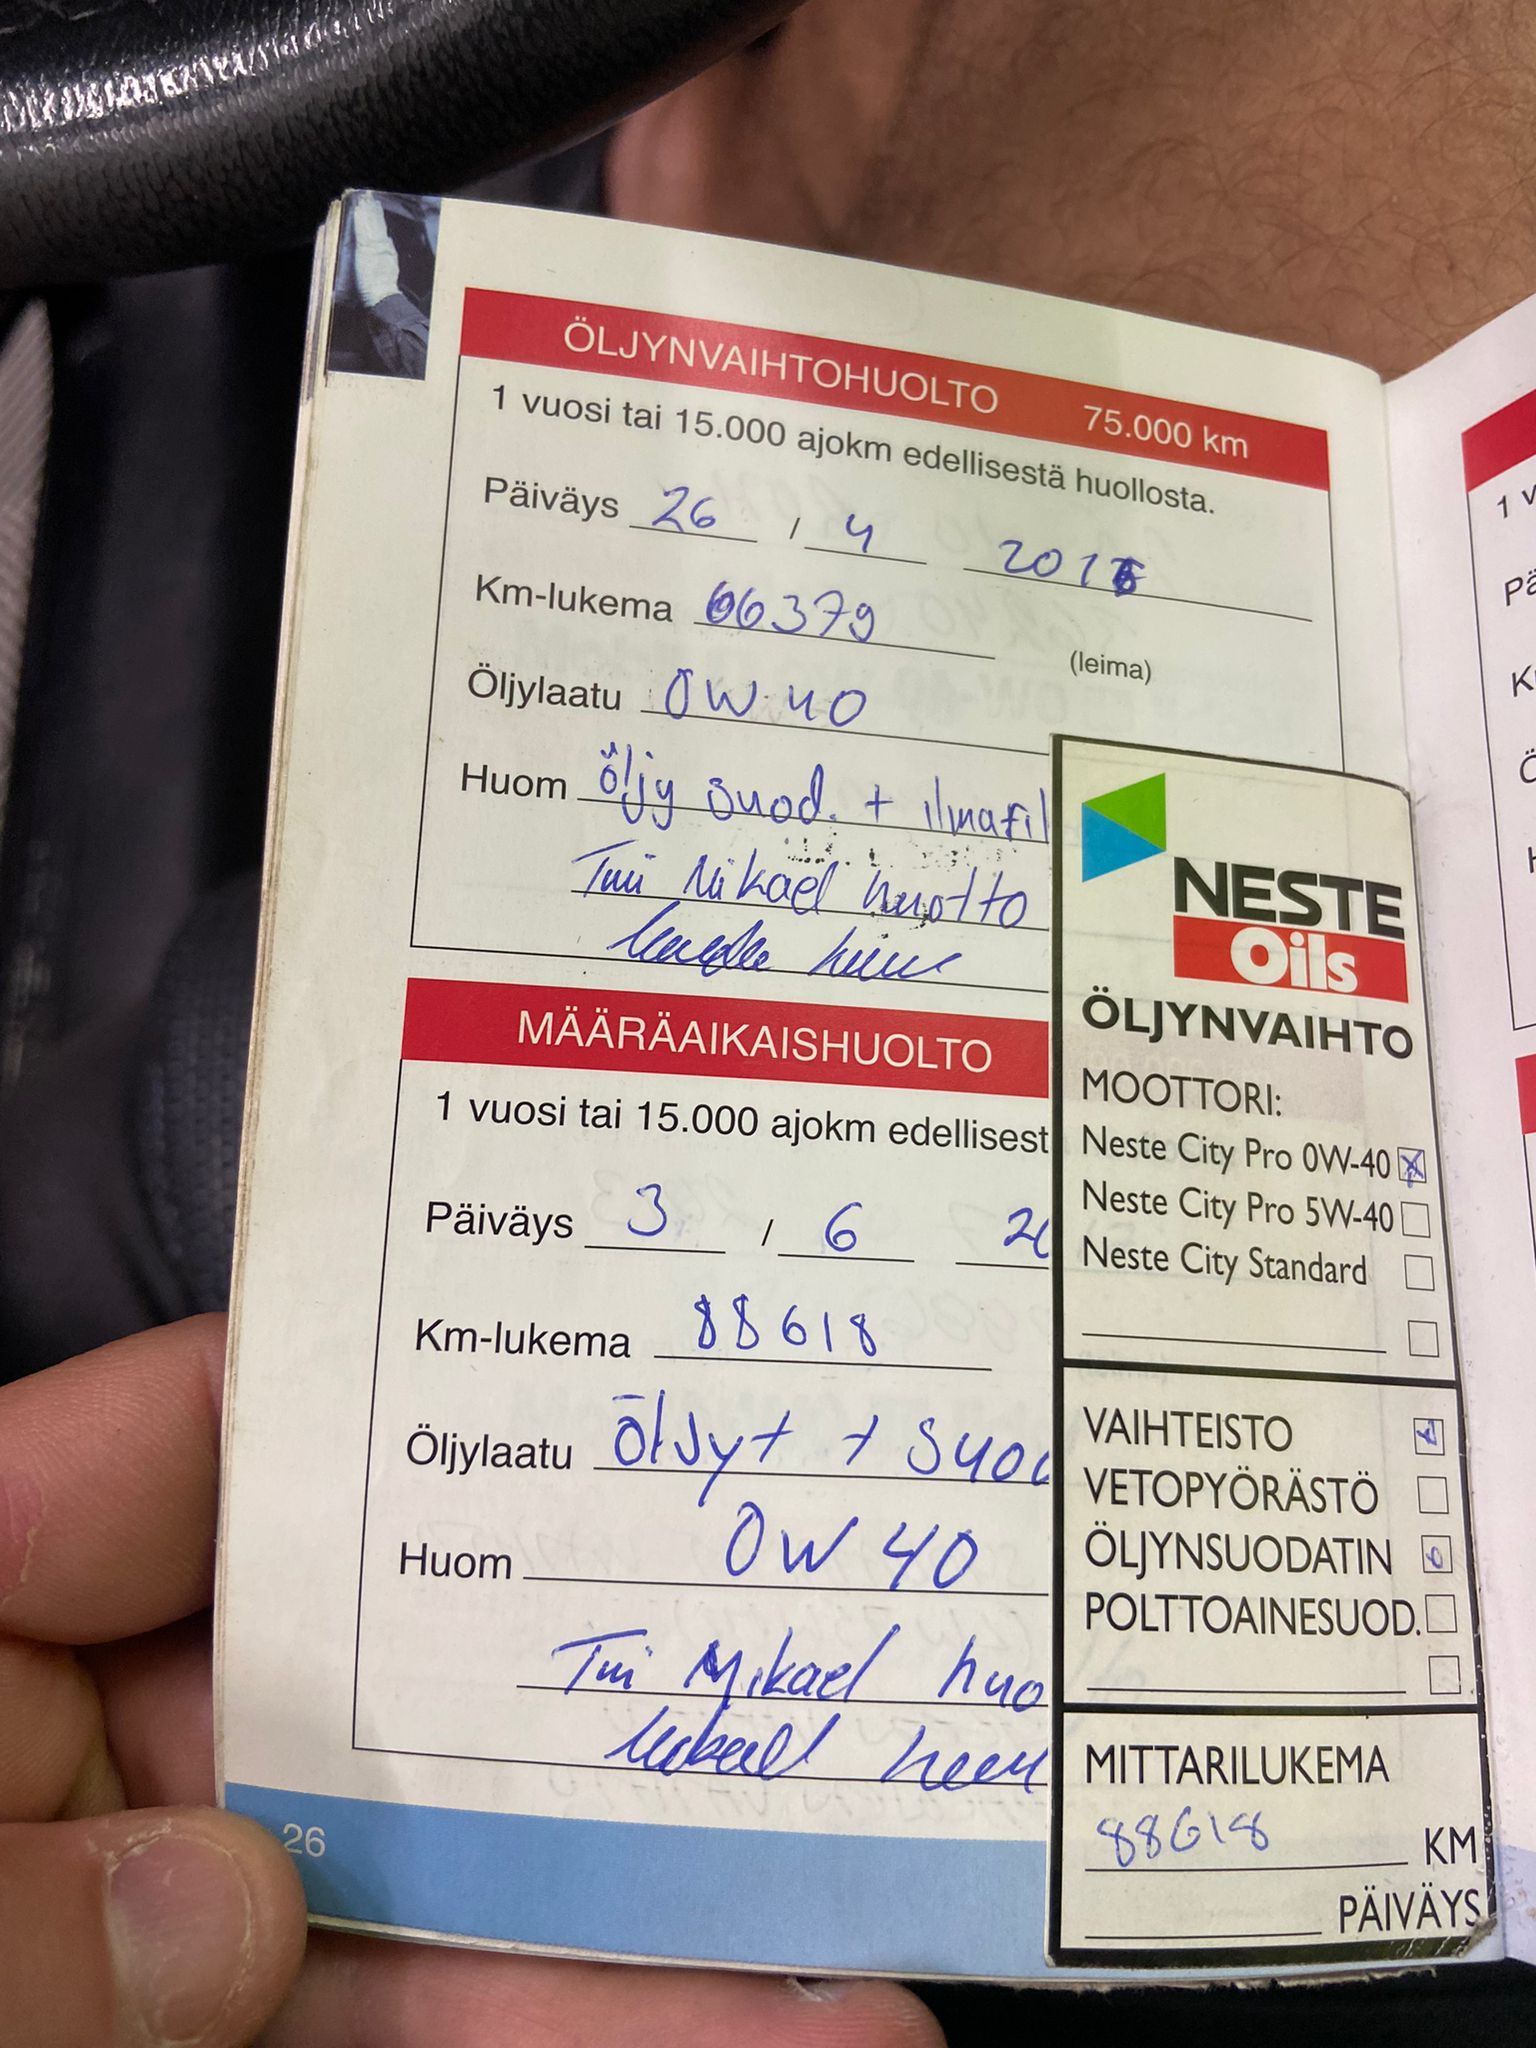 ÖLJYNVAIHTOHUOLTO 75.000 km
1 vuosi tai 15.000 ajokm edellisestä huollosta.
Päiväys 26 / 4 2016
Km-lukema 66379
(leima)
Öljylaatu 0W40
Huom öljy suod. + ilmafil
Tmi Mikael huolto
MÄÄRÄAIKAISHUOLTO
1 vuosi tai 15.000 ajokm edellisest
Päiväys 3 / 6 20
Km-lukema 88618
Öljylaatu öljyt + suod
Huom 0W40
Tmi Mikael huo
26
NESTE
Oils
ÖLJYNVAIHTO
MOOTTORI:
Neste City Pro 0W-40
Neste City Pro 5W-40
Neste City Standard
VAIHTEISTO
VETOPYÖRÄSTÖ
ÖLJYNSUODATIN
POLTTOAINESUOD.
MITTARILUKEMA
88618 KM
PÄIVÄYS
1 v
Pä